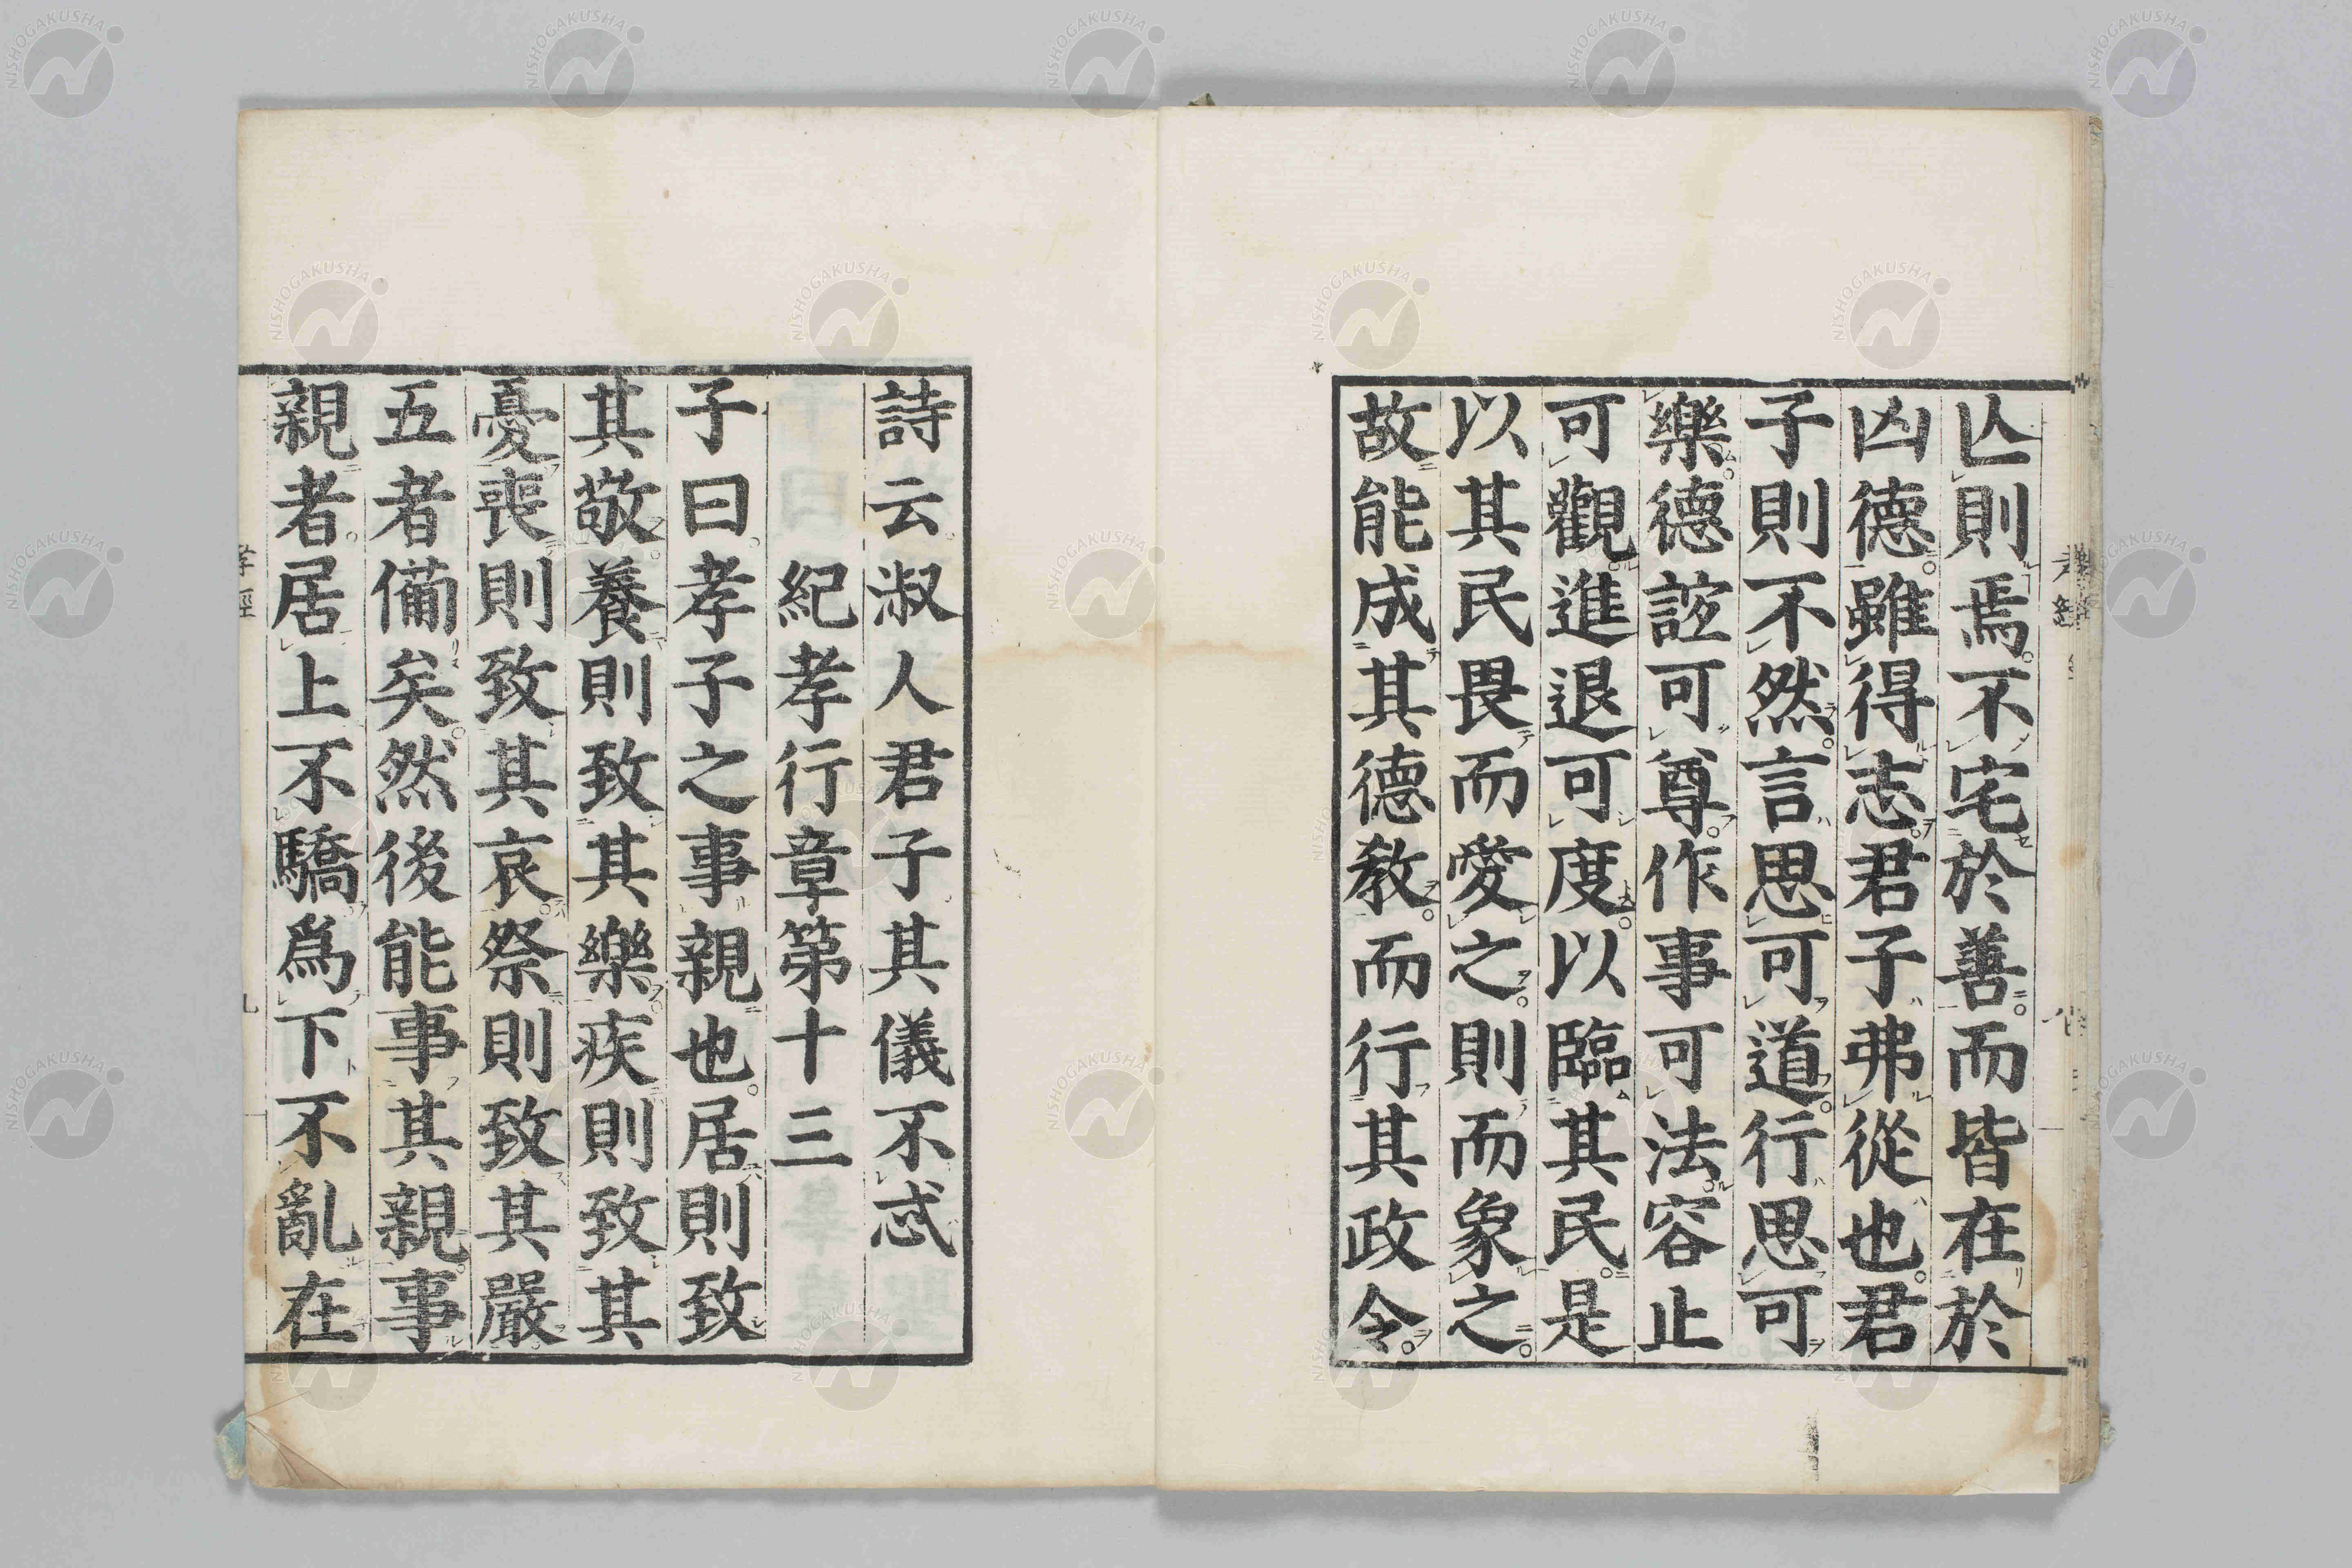 亾則焉不宅於善而皆在於
凶德雖得志君子弗從也君
子則不然言思可道行思可
樂德誼可尊作事可法容止
可觀進退可度以臨其民是
以其民畏而愛之則而象之
故能成其德教而行其政令
詩云淑人君子其儀不忒
紀孝行章第十三
子曰孝子之事親也居則致
其敬養則致其樂疾則致其
憂喪則致其哀祭則致其嚴
五者備矣然後能事其親事
親者居上不驕爲下不亂在
孝經
NISHOGAKUSHA